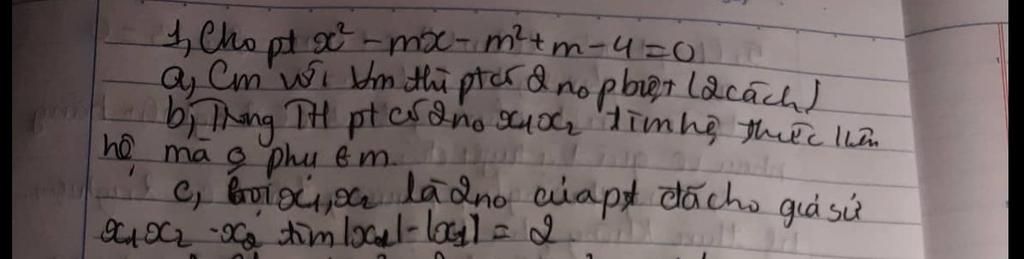 1, Cho pt x² - mx - m² + m - 4 = 0
a, Cm với ∀m thì pt có 2 no pbiệt (2 cách)
b, Trong TH pt có 2 no x1 x2 tìm hệ thức liên
hệ mà o phụ ∈ m.
c, Gọi x1, x2 là 2 no của pt đã cho giả sử
x1 x2 - x2 tìm |x2| - |x1| = 2